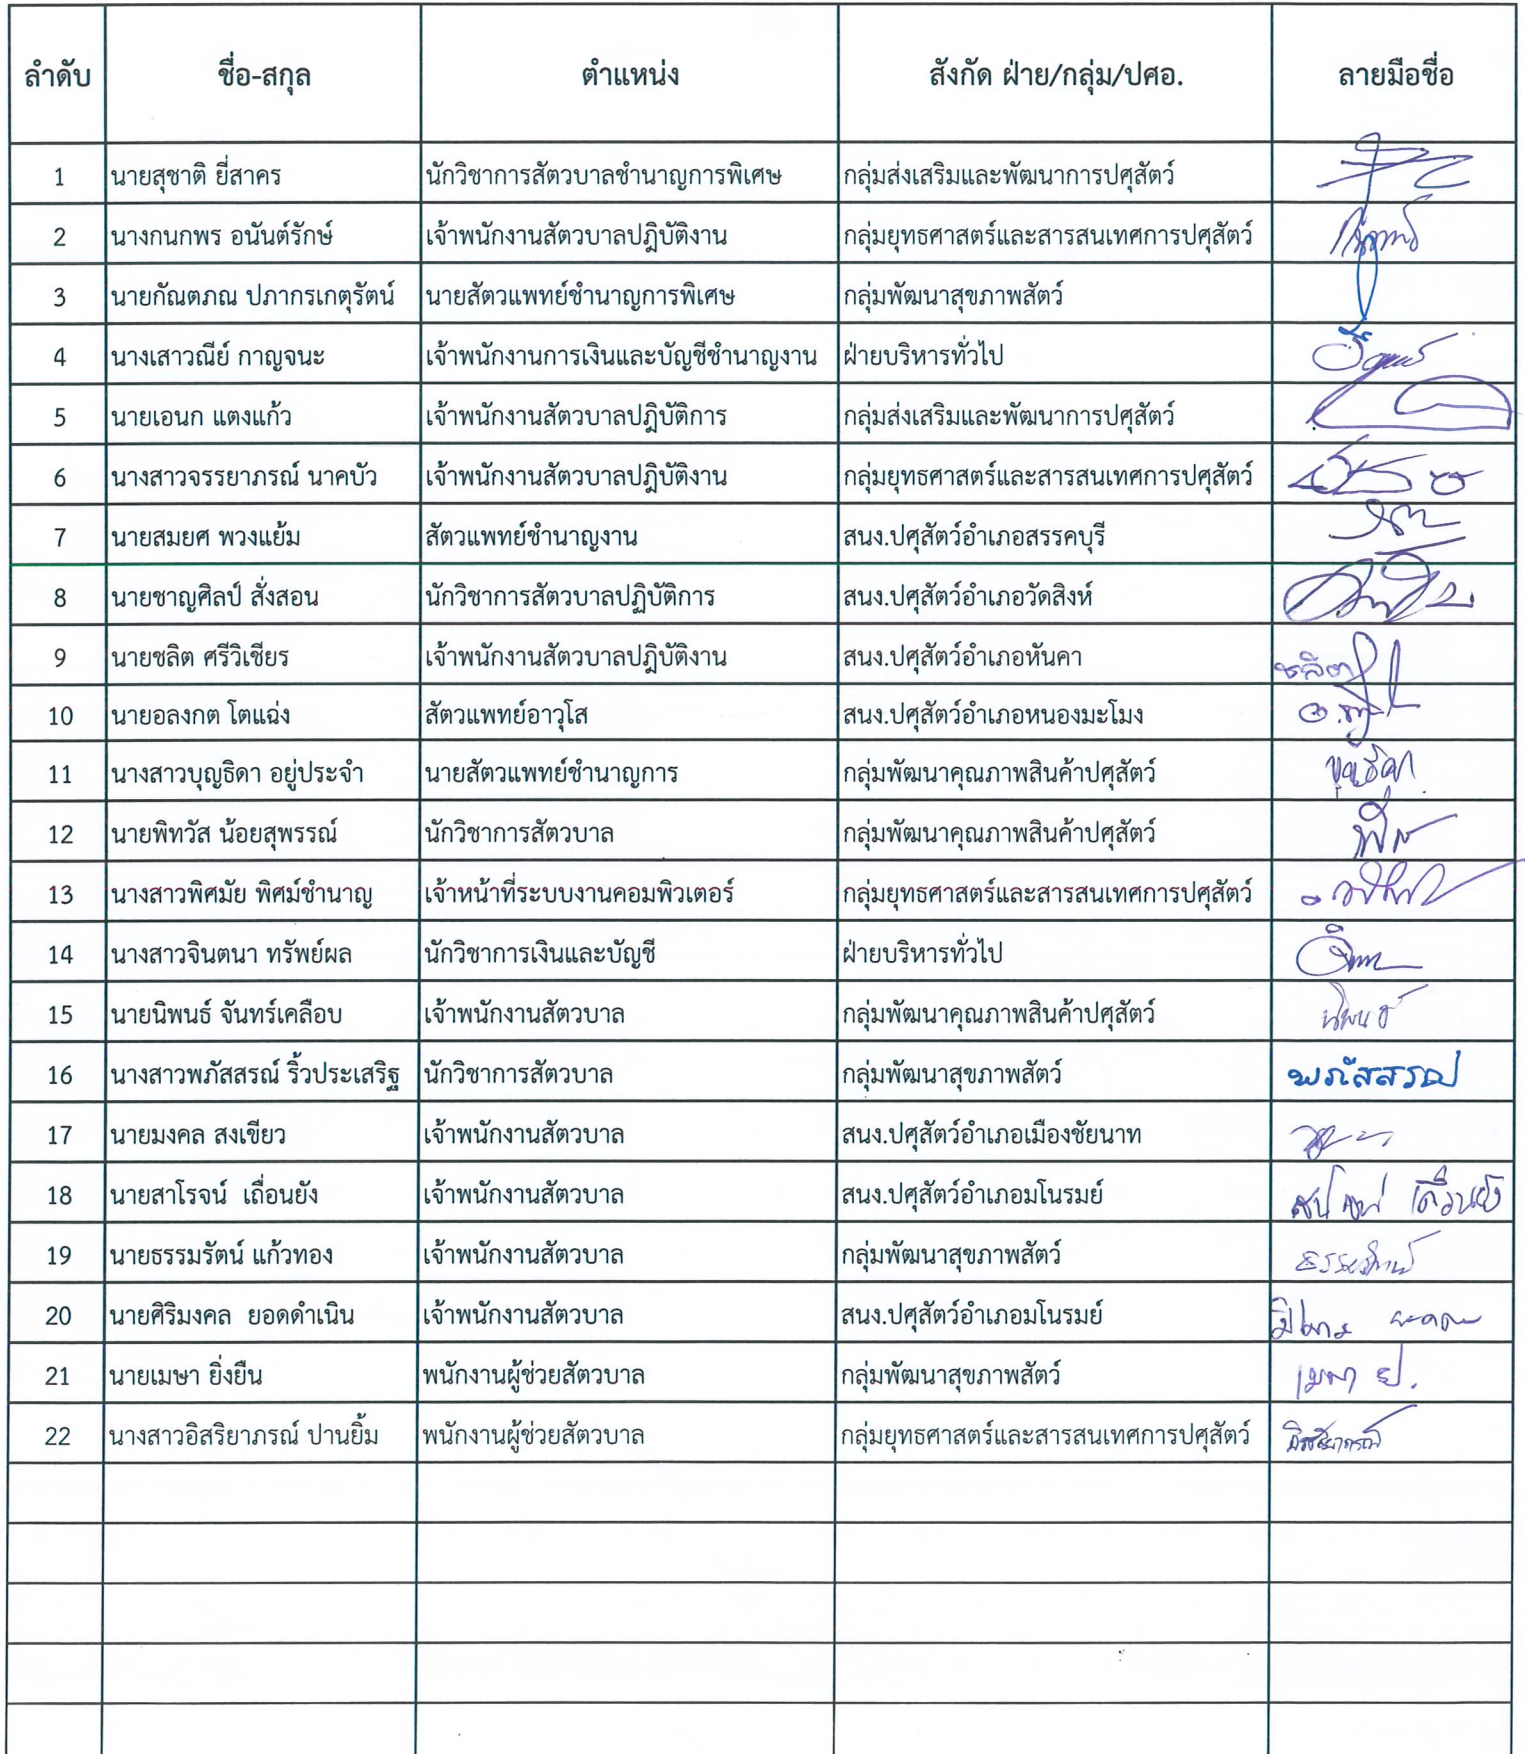 ลำดับ ชื่อ-สกุล ตำแหน่ง สังกัด ฝ่าย/กลุ่ม/ปศอ. ลายมือชื่อ
1 นายสุชาติ ยี่สาคร นักวิชาการสัตวบาลชำนาญการพิเศษ กลุ่มส่งเสริมและพัฒนาการปศุสัตว์
2 นางกนกพร อนันต์รักษ์ เจ้าพนักงานสัตวบาลปฏิบัติงาน กลุ่มยุทธศาสตร์และสารสนเทศการปศุสัตว์
3 นายกัณตภณ ปภากรเกตุรัตน์ นายสัตวแพทย์ชำนาญการพิเศษ กลุ่มพัฒนาสุขภาพสัตว์
4 นางเสาวณีย์ กาญจนะ เจ้าพนักงานการเงินและบัญชีชำนาญงาน ฝ่ายบริหารทั่วไป
5 นายเอนก แตงแก้ว เจ้าพนักงานสัตวบาลปฏิบัติการ กลุ่มส่งเสริมและพัฒนาการปศุสัตว์
6 นางสาวจรรยาภรณ์ นาคบัว เจ้าพนักงานสัตวบาลปฏิบัติงาน กลุ่มยุทธศาสตร์และสารสนเทศการปศุสัตว์
7 นายสมยศ พวงแย้ม สัตวแพทย์ชำนาญงาน สนง.ปศุสัตว์อำเภอสรรคบุรี
8 นายชาญศิลป์ สั่งสอน นักวิชาการสัตวบาลปฏิบัติการ สนง.ปศุสัตว์อำเภอวัดสิงห์
9 นายชลิต ศรีวิเชียร เจ้าพนักงานสัตวบาลปฏิบัติงาน สนง.ปศุสัตว์อำเภอหันคา ชลิต
10 นายอลงกต โตแฉ่ง สัตวแพทย์อาวุโส สนง.ปศุสัตว์อำเภอหนองมะโมง
11 นางสาวบุญธิดา อยู่ประจำ นายสัตวแพทย์ชำนาญการ กลุ่มพัฒนาคุณภาพสินค้าปศุสัตว์ บุญธิดา
12 นายพิทวัส น้อยสุพรรณ์ นักวิชาการสัตวบาล กลุ่มพัฒนาคุณภาพสินค้าปศุสัตว์
13 นางสาวพิศมัย พิศม์ชำนาญ เจ้าหน้าที่ระบบงานคอมพิวเตอร์ กลุ่มยุทธศาสตร์และสารสนเทศการปศุสัตว์
14 นางสาวจินตนา ทรัพย์ผล นักวิชาการเงินและบัญชี ฝ่ายบริหารทั่วไป
15 นายนิพนธ์ จันทร์เคลือบ เจ้าพนักงานสัตวบาล กลุ่มพัฒนาคุณภาพสินค้าปศุสัตว์ นิพนธ์
16 นางสาวพภัสสรณ์ ริ้วประเสริฐ นักวิชาการสัตวบาล กลุ่มพัฒนาสุขภาพสัตว์ พภัสสรณ์
17 นายมงคล สงเขียว เจ้าพนักงานสัตวบาล สนง.ปศุสัตว์อำเภอเมืองชัยนาท
18 นายสาโรจน์ เถื่อนยัง เจ้าพนักงานสัตวบาล สนง.ปศุสัตว์อำเภอมโนรมย์ สาโรจน์ เถื่อนยัง
19 นายธรรมรัตน์ แก้วทอง เจ้าพนักงานสัตวบาล กลุ่มพัฒนาสุขภาพสัตว์ ธรรมรัตน์
20 นายศิริมงคล ยอดดำเนิน เจ้าพนักงานสัตวบาล สนง.ปศุสัตว์อำเภอมโนรมย์
21 นายเมษา ยิ่งยืน พนักงานผู้ช่วยสัตวบาล กลุ่มพัฒนาสุขภาพสัตว์ เมษา ย.
22 นางสาวอิสริยาภรณ์ ปานยิ้ม พนักงานผู้ช่วยสัตวบาล กลุ่มยุทธศาสตร์และสารสนเทศการปศุสัตว์ อิสริยาภรณ์